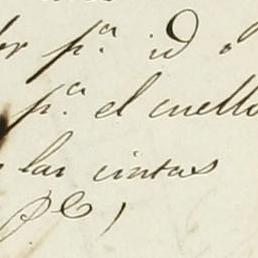 p.ª id
p.ª el cuello
las cintas